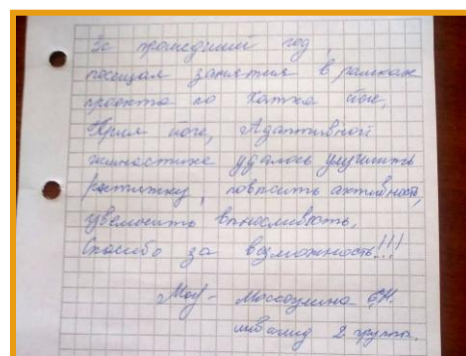 За прошедший год,
посещая занятия в рамках
проекта по Хатха йоге,
Крия йоге, Адаптивной
гимнастике удалось улучшить
растяжку, повысить активность,
увеличить выносливость.
Спасибо за возможность!!!
инвалид 2 группы.